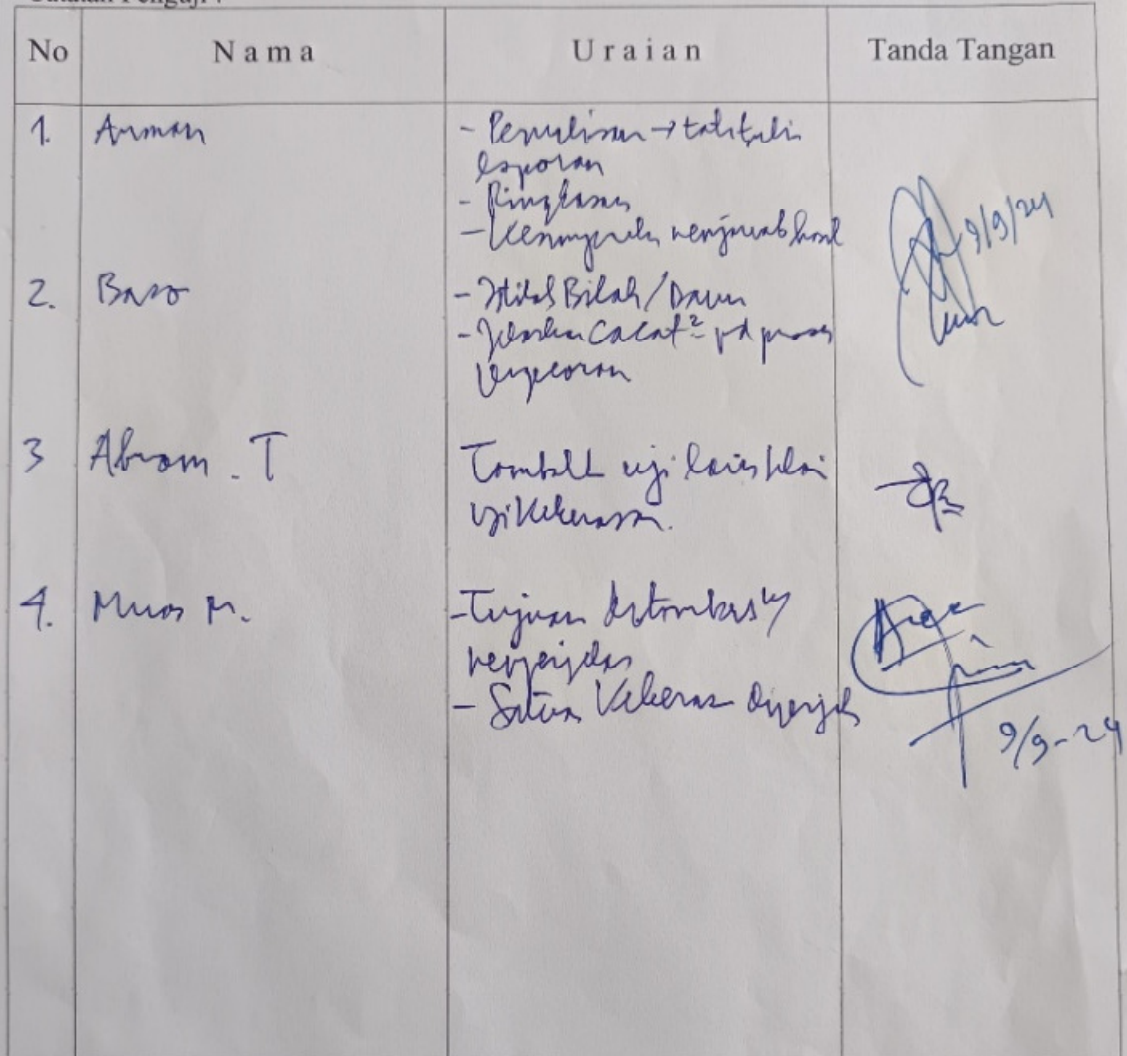 No Nama Uraian Tanda Tangan
1. Arman - Penulisan → tata tulis
laporan
- Ringkasan
- Kesimpulan menjawab
9/9/24
2. Baso - Istilah Bilah/Daun
- Jelaskan Cacat² pd proses
pengecoran
3 Abram. T uji
uji kekerasan.
4. Muas M. - Tujuan
- Satuan Kekerasan diperjelas
9/9-24